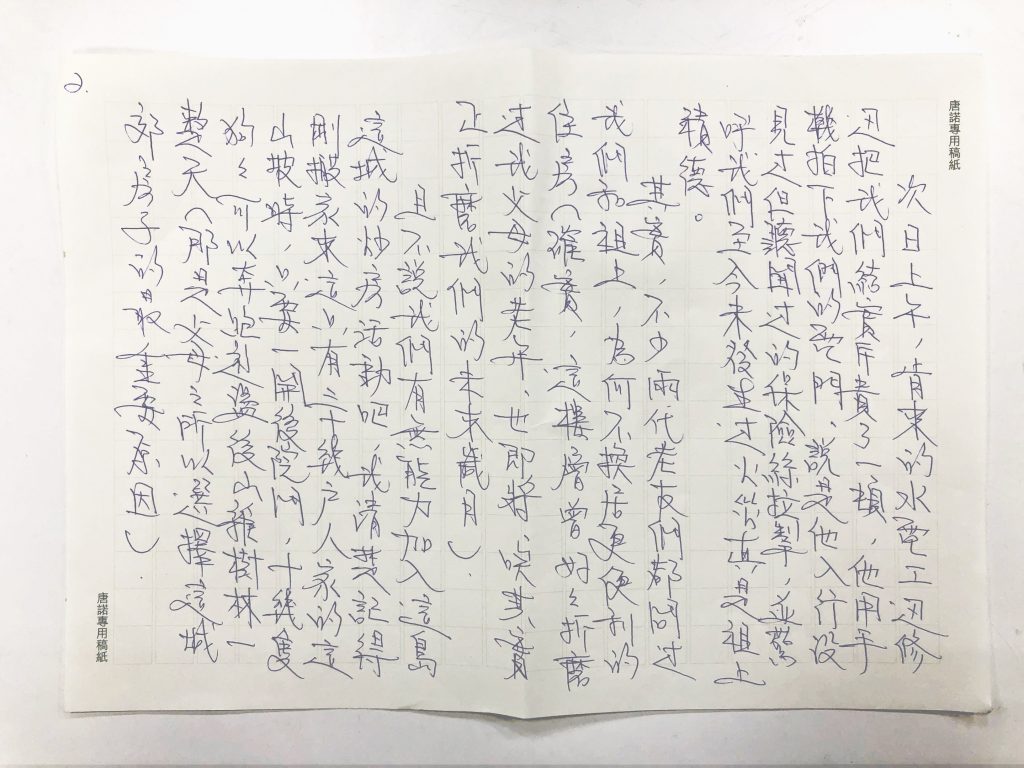 2.
唐諾專用稿紙
次日上午,肯來的水電工邊修
邊把我們結實斥責了一頓,他用手
機拍下我們的電門、說是他入行沒
見過但聽聞過的保險絲拉掣,並驚
呼我們至今未發生過火災真是祖上
積德。
其實,不少兩代老友們都問過
我們和祖上,為何不換居更便利的
住房(確實,這樓層曾好々折磨
過我父母的老年、也即將、唉其實
正折磨我們的未來歲月)。
且不說我們有無能力加入這島
這城的炒房活動吧,我清楚記得
剛搬家來這只有二十幾戶人家的這
山坡時,只要一開後院門,十幾隻
狗々可以奔跑追盪後山雜樹林一
整天(那是父母之所以選擇這城
郊房子的最重要原因)。
唐諾專用稿紙